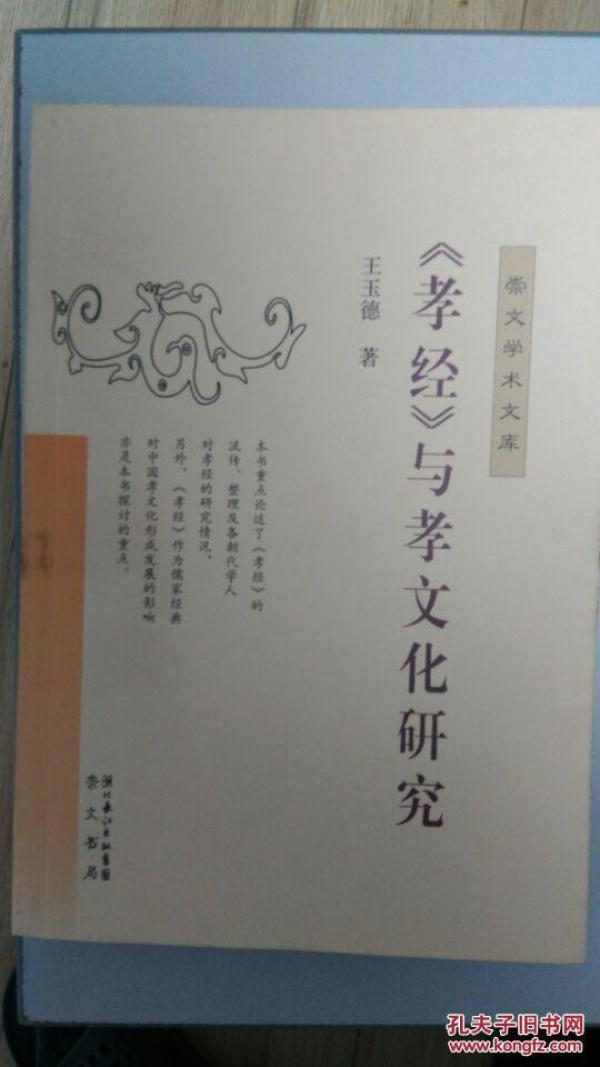 崇文学术文库
《孝经》与孝文化研究
王玉德 著
本书重点论述了《孝经》的
流传、整理及各朝代学人
对孝经的研究情况,
另外,《孝经》作为儒家经典
对中国孝文化形成发展的影响
亦是本书探讨的重点。
湖北长江出版集团
崇文书局
孔夫子旧书网
www.kongfz.com